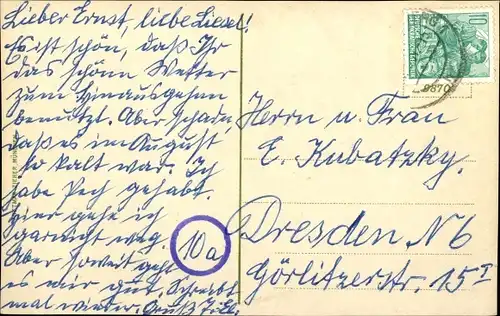 Lieber Ernst, liebe Liesel!
Es ist schön, daß Ihr
das schönn Wetter
zum Hinausgehen
benutzt. Aber schade,
daß es im August
so kalt war. Ich
habe Pech gehabt.
Hier gehe ich
garnicht weg.
Aber soweit geht
es mir gut. Schreibt
mal wieder. Gruß
10a
10
9870
Herrn u. Frau
E. Kubatzky.
Dresden N6
Görlitzerstr. 15 I